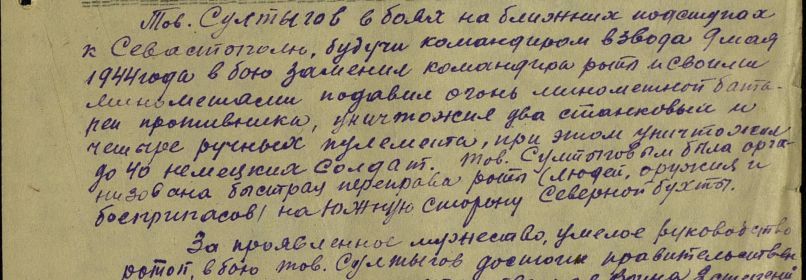 Тов. Султыгов в боях на ближних подступах
к Севастополю, будучи командиром взвода 9 мая
1944 года в бою заменил командира роты и своими
минометами подавил огонь минометной бата-
реи противника, уничтожил два станковых и
четыре ручных пулемета, при этом уничтожил
до 40 немецких солдат. Тов. Султыговым была орга-
низована быстрая переправа роты (людей, оружия и
боеприпасов) на южную сторону Северной бухты.
За проявленное мужество, умелое руководство
ротой, в бою тов. Султыгов достоин правительствен